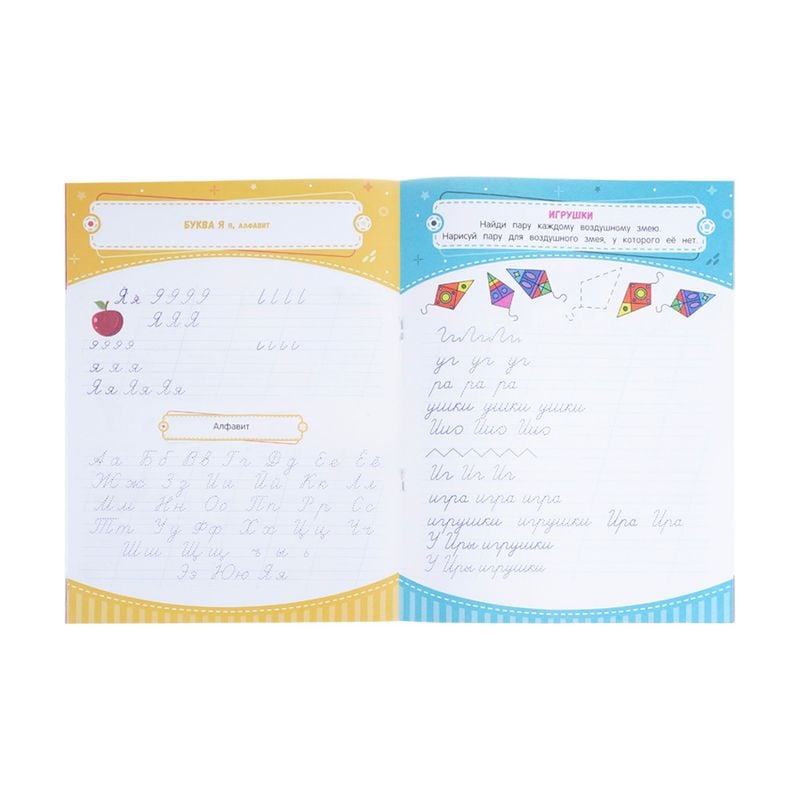 БУКВА Я я, АЛФАВИТ
Яя
Я Я Я
я я я
Яя Яя Яя
Алфавит
Аа Бб Вв Гг Дд Ее Ёё
Жж Зз Ии Йй Кк Лл
Мм Нн Оо Пп Рр Сс
Тт Уу Фф Хх Цц Чч
Шш Щщ ъ ы ь
Ээ Юю Яя
ИГРУШКИ
Найди пару каждому воздушному змею.
Нарисуй пару для воздушного змея, у которого её нет.
уг уг уг
ра ра ра
ушки ушки ушки
Иг Иг Иг
игра игра игра
игрушки игрушки Ира Ира
У Иры игрушки
У Иры игрушки